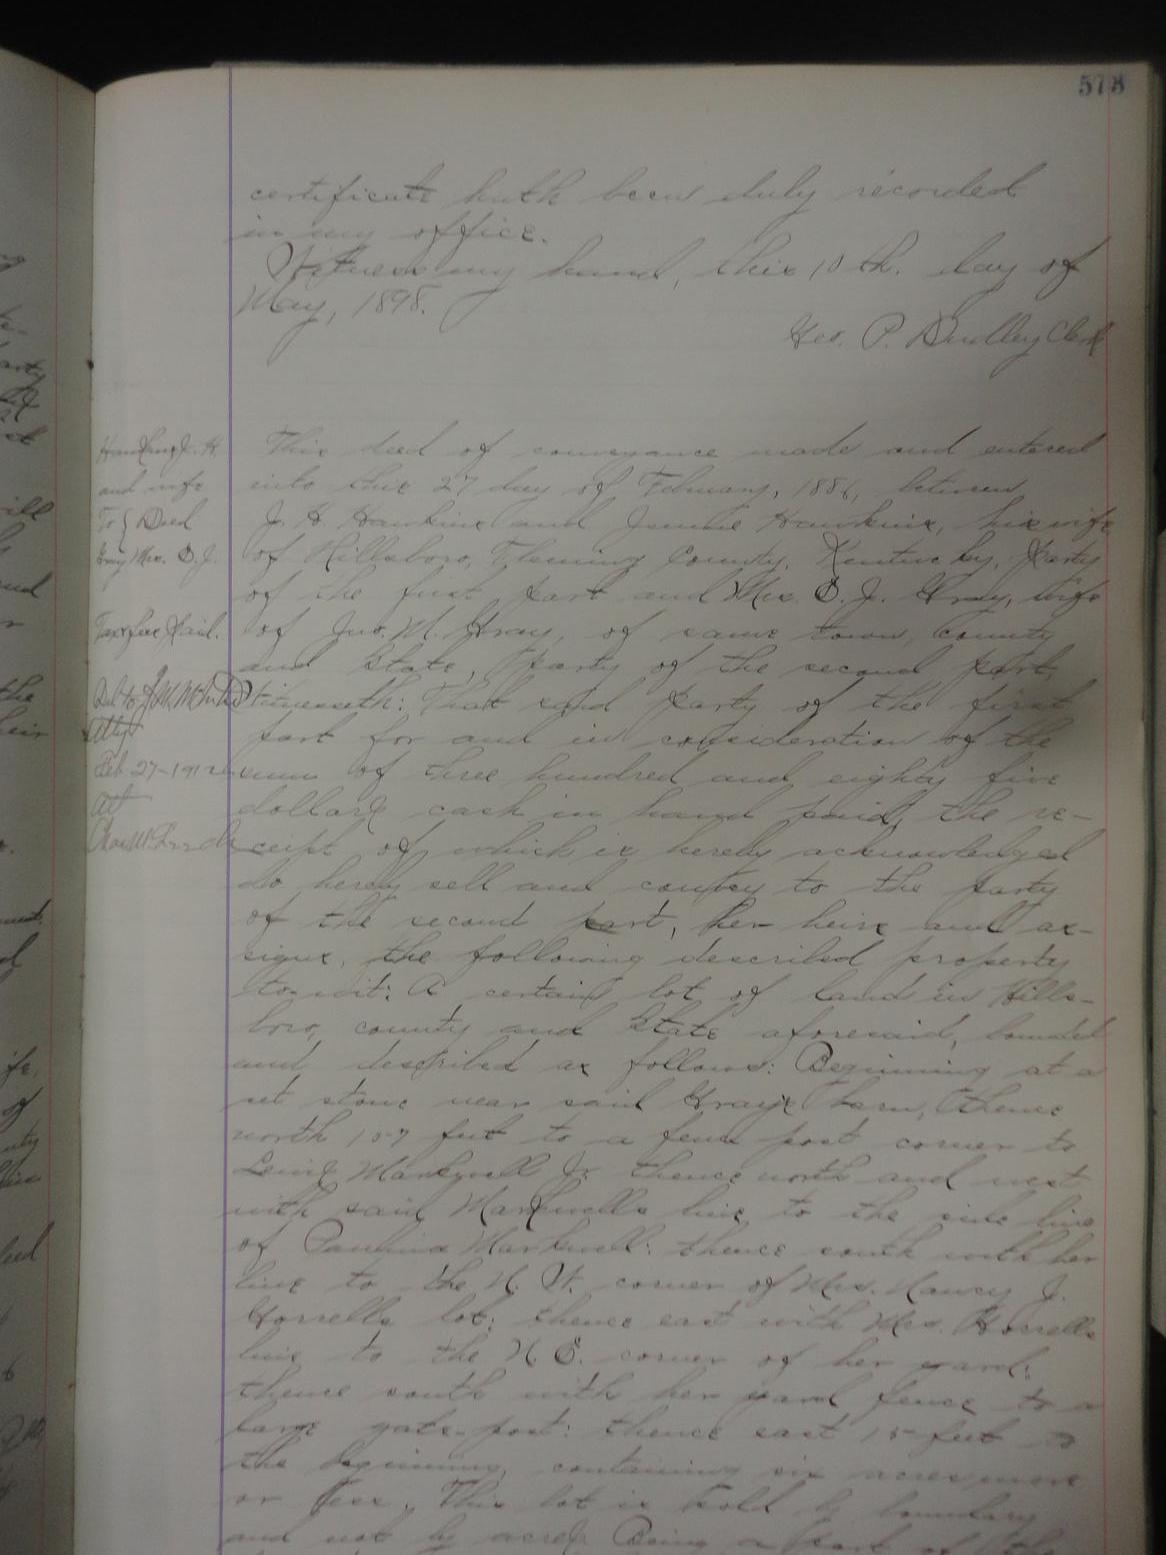 573
certificate hath been duly recorded
in my office.
Witness my hand, this 10th. day of
May, 1898.
Geo. P. Dudley Clerk
Hawkins J. H.
and wife
To { Deed
Gray Mrs. E. J.
Tax fee Paid.
Del to
Atty
Feb 27-1912
Att
This deed of conveyance made and entered
into this 27 day of February, 1886, between
J. H. Hawkins and Jennie Hawkins, his wife
of Hillsboro, Fleming County, Kentucky, party
of the first part and Mrs. E. J. Gray, wife
of Jno. M. Gray, of same town, county
and State, party of the second part,
Witnesseth: That said party of the first
part for and in consideration of the
sum of three hundred and eighty five
dollars cash in hand paid, the re-
ceipt of which is hereby acknowledged
do hereby sell and convey to the party
of the second part, her heirs and as-
signs, the following described property
to-wit: A certain lot of land in Hills-
boro, county and State aforesaid, bounded
and described as follows: Beginning at a
set stone near said Grays barn, thence
north 157 feet to a fence post corner to
Lewis Markwell Jr. thence north and west
with said Markwells line to the side line
of Paulina Markwell: thence south with her
line to the N. W. corner of Mrs. Nancy J.
Gorrells lot: thence east with Mrs. Gorrells
line to the N. E. corner of her yard:
thence south with her yard fence to a
large gate-post: thence east 15 feet to
the beginning, containing six acres more
or less. This lot is sold by boundary
and not by acres. Being a part of the